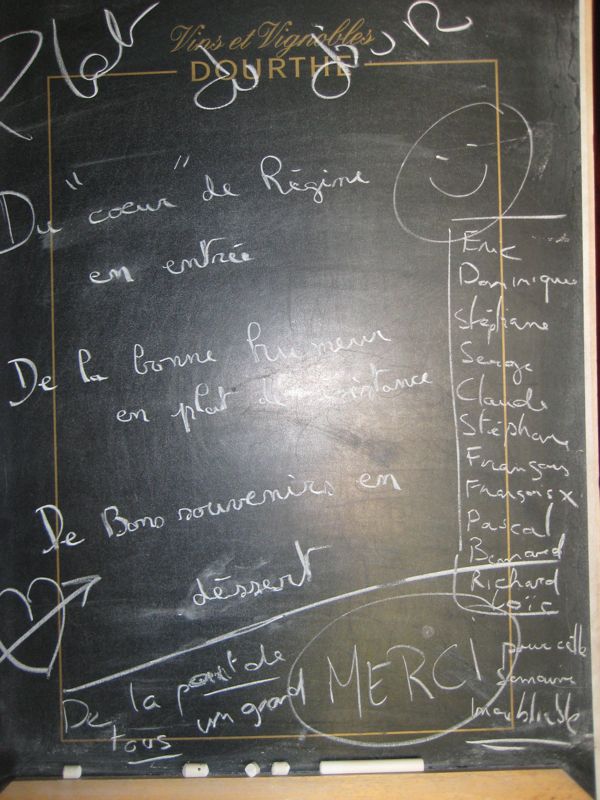 Vins et Vignobles
DOURTHE
Plat du jour
Du "coeur" de Régime
en entrée
De la bonne humeur
en plat de résistance
De Bons souvenirs en
déssert
Eric
Dominique
Stéphane
Serge
Claude
Stéphane
François
François X
Pascal
Bernard
Richard
Loïc
De la part de
tous un grand
MERCI
pour cette
semaine
inoubliable